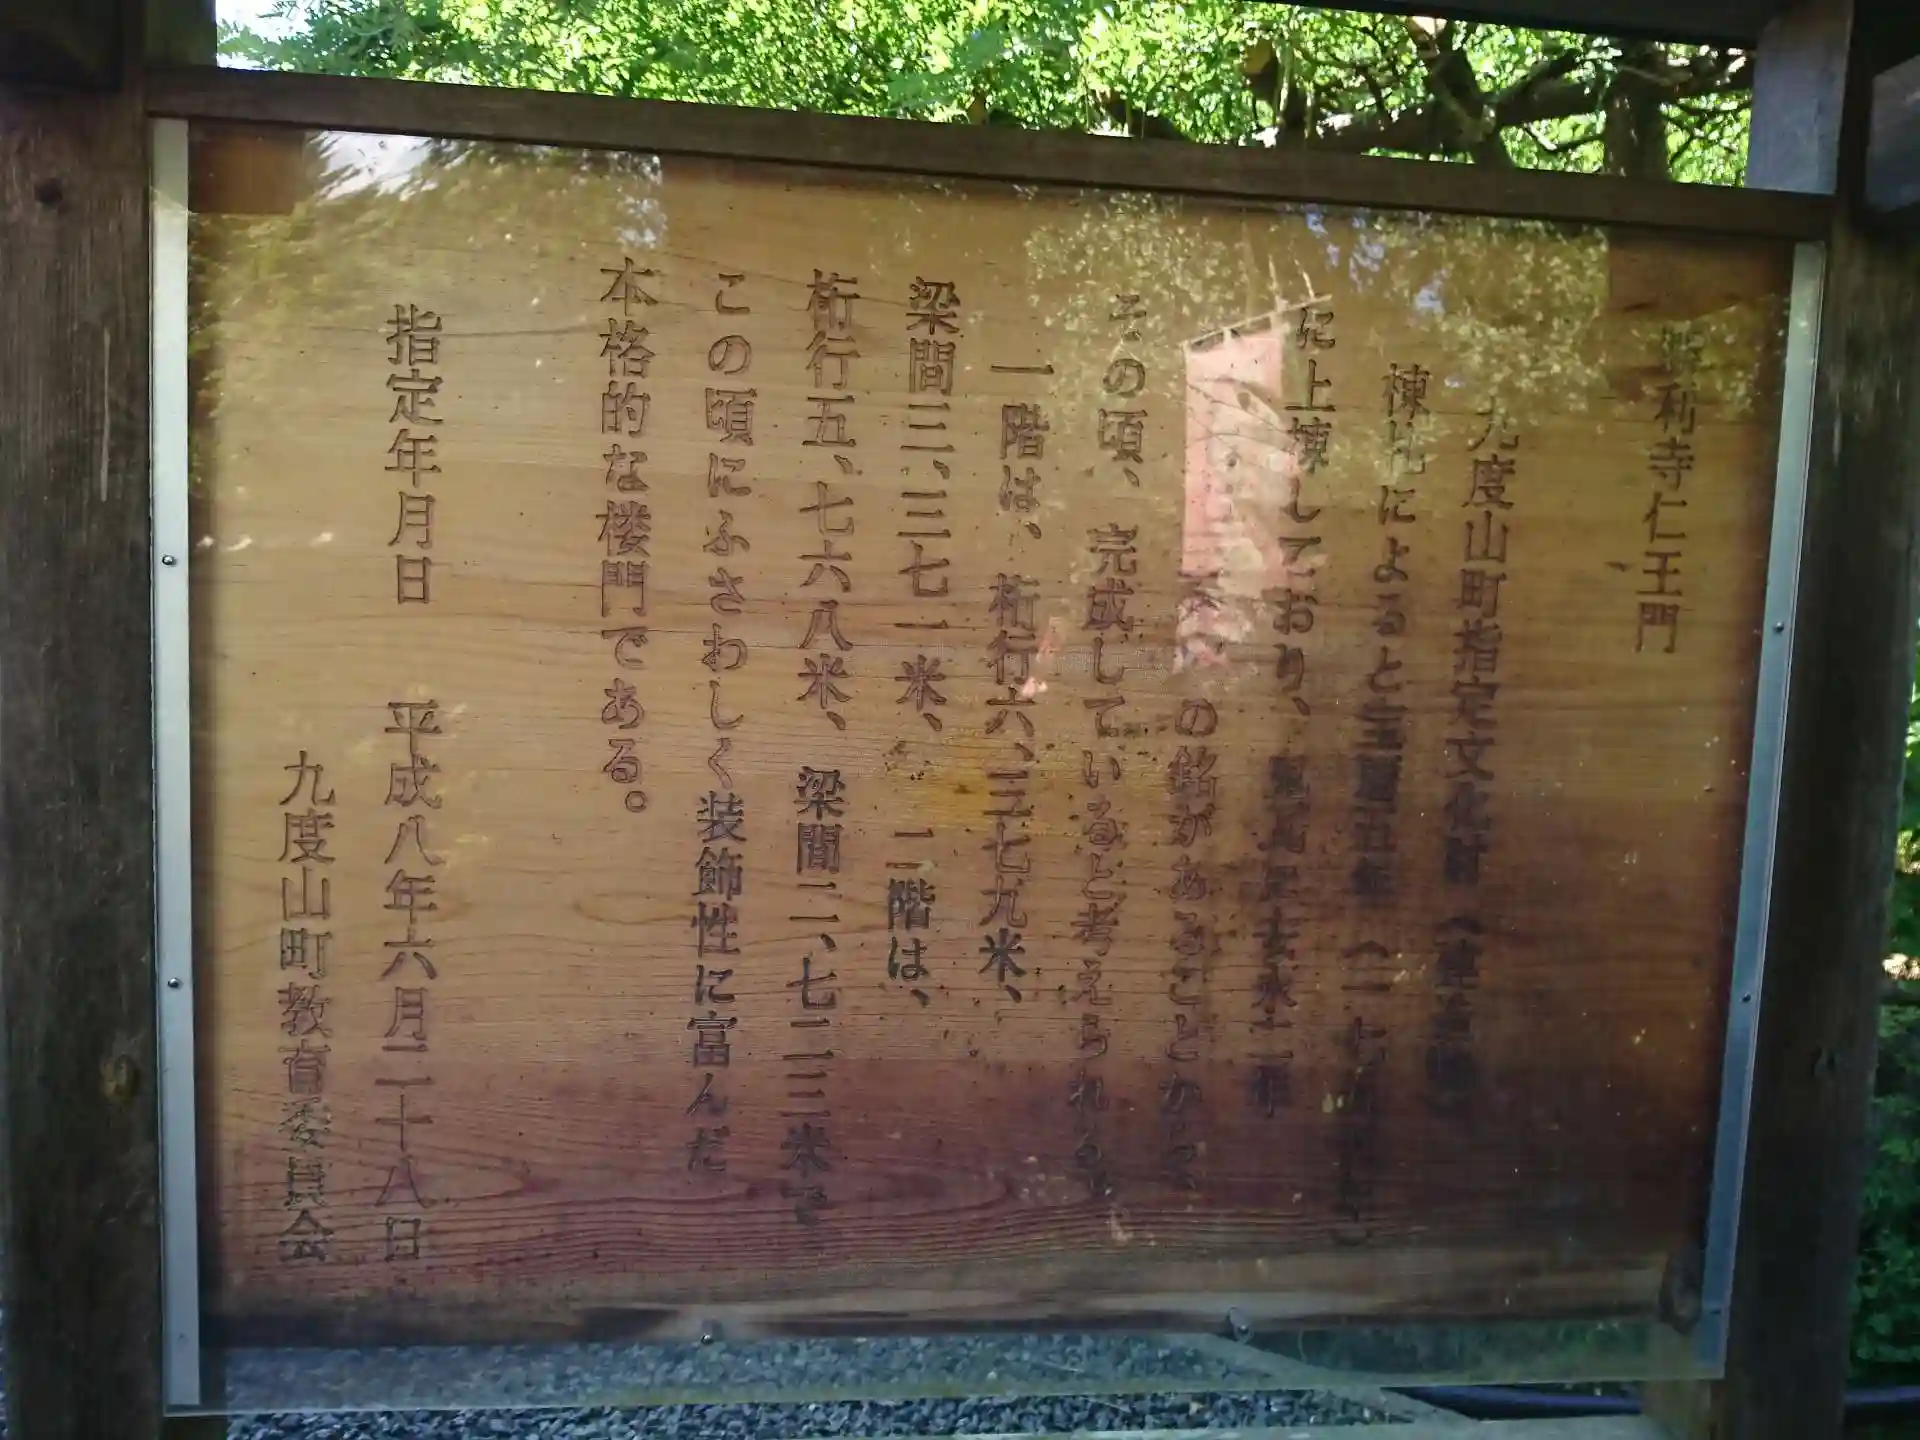 勝利寺仁王門
九度山町指定文化財（建造物）
棟札によると宝暦五年（一七五五）
に上棟しており、鬼瓦に安永二年
の銘があることから、
その頃、完成していると考えられる。
一階は、桁行六、三七九米、
梁間三、三七一米、二階は、
桁行五、七六八米、梁間二、七二三米で
この頃にふさわしく装飾性に富んだ
本格的な楼門である。
指定年月日 平成八年六月二十八日
九度山町教育委員会